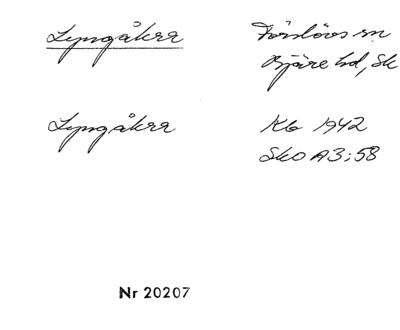 Ljungåkra
Förslövs sn
Bjäre hd, Sk
Ljungåkra
Kb 1942
Sko A3:58
Nr 20207